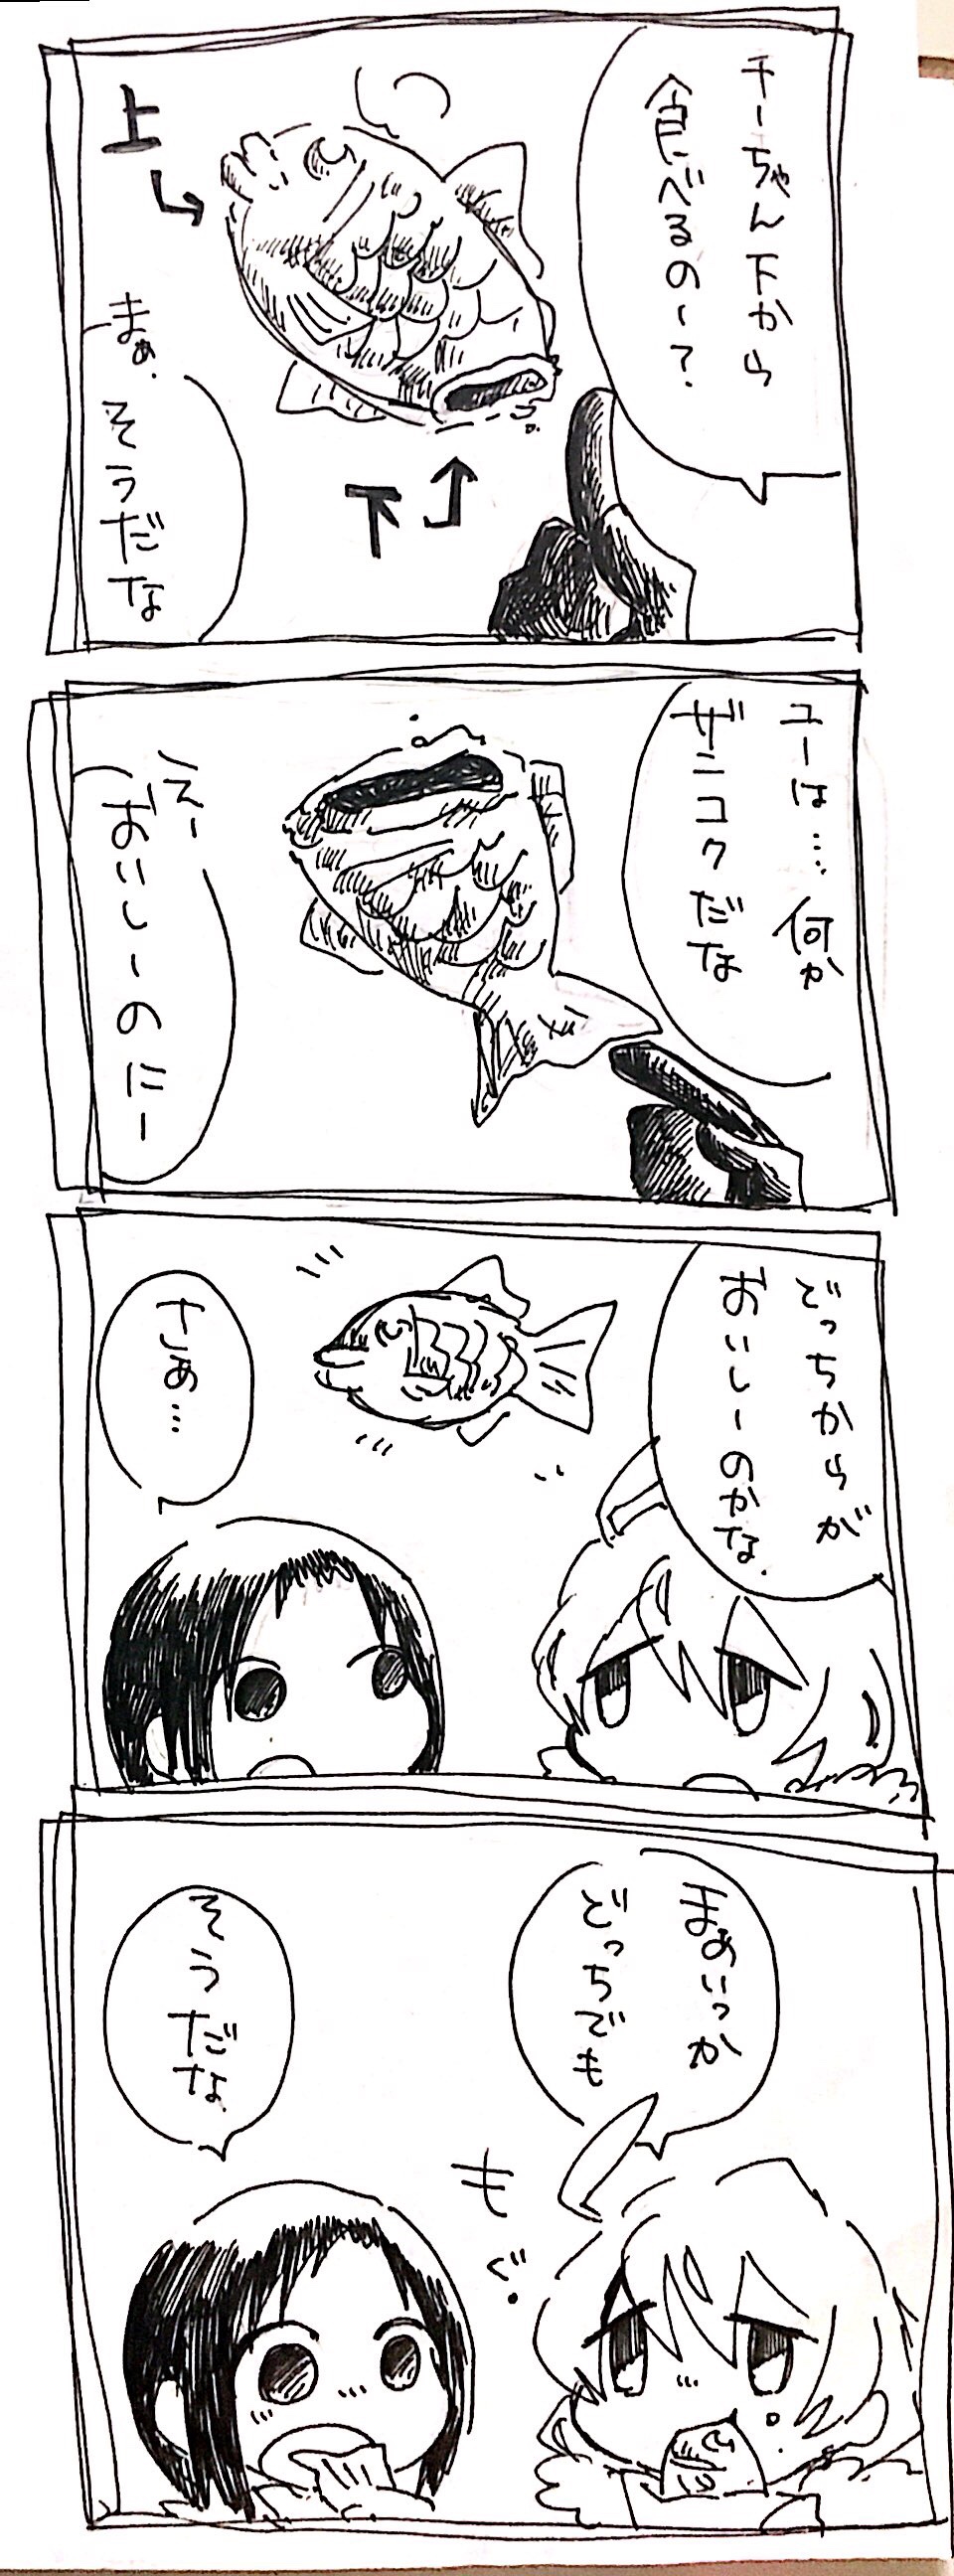 チーちゃん下から
食べるのー？
上
下
まぁ.
そうだな
ユーは…何か
ザンコクだな
えー
おいしーのにー
どっちからが
おいしーのかな.
さぁ…
まあいっか
どっちでも
そうだな
もぐ.